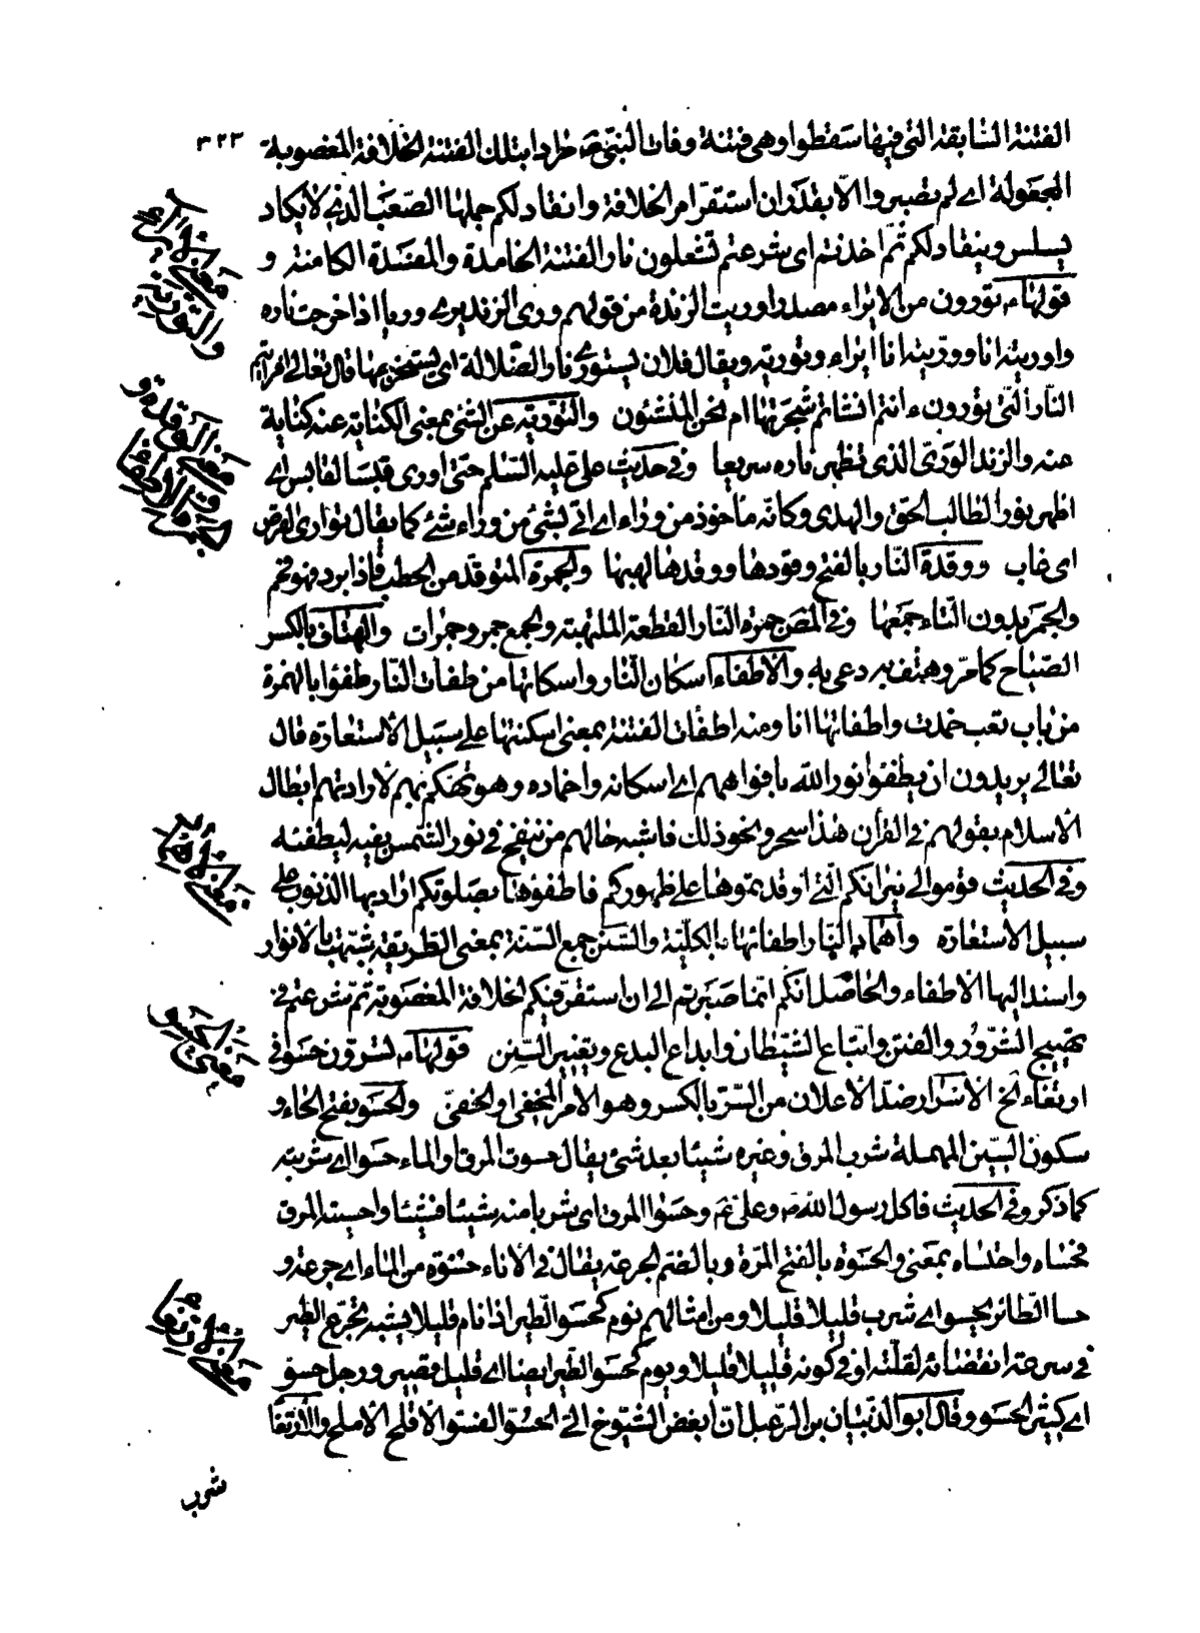 ٣٢٣
الفتنة السابقة التى فيها سقطوا وهى فتنة وفات النبى ص مرادا بتلك الفتنة الخلافة المغصوبة
المجعولة اى لم تصبروا الا بقدر ان استقر امر الخلافة وانقاد لكم جملها الصعب الذى لا يكاد
يسلس وينقاد لكم ثم اخذتم اى شرعتم تشعلون نار الفتنة الخامدة والمفسدة الكامنة و
قولها ع تورون من الايراء مصدر اوريت الزندة من قولهم ورى الزند يرى وريا اذا خرجت ناره
واوريته انا ووريته انا ايراء وتورية ويقال فلان يستورى نار الضلالة اى يستخرجها قال تعالى افرايتم
النار التى تورون ءانتم انشاتم شجرتها ام نحن المنشئون والتورية عن الشئ بمعنى الكناية عنه كناية
عنه والزند الورى الذى تظهر ناره سريعا وفى حديث على عليه السلم حتى اورى قبسا لقابس اى
اظهر نورا لطالب الحق والهدى وكانه ماخوذ من وراء اى اتى بشئ من وراء شئ كما يقال توارى القرص
اى غاب ووقدة النار بالفتح وقودها ووقدها لهبها والجمرة المتوقد من الحطب فاذا برد فهو فحم
والجمر بدون التاء جمعها وفى المصر جمرة النار القطعة الملتهبة والجمع جمر وجمرات والهتاف بالكسر
الصياح كما مر وهتف به دعى به والاطفاء اسكان النار واسكاتها من طفات النار طفؤا بالهمزة
من باب تعب خمدت واطفاتها انا ومنه اطفات الفتنة بمعنى اسكنتها على سبيل الاستعارة قال
تعالى يريدون ان يطفئوا نور الله بافواههم اى اسكانه واخماده وهو تهكم بهم لارادتهم ابطال
الاسلام بقولهم فى القرآن هذا سحر ونحو ذلك فاشبه حالهم من ينفخ فى نور الشمس بفيه ليطفئه
وفى الحديث قوموا الى نيرانكم التى اوقدتموها على ظهوركم فاطفؤها بصلوتكم اراد بها الذنوب على
سبيل الاستعارة واهماد النار اطفائها بالكلية والسنن جمع السنة بمعنى الطريقة شبهت بالانوار
واسند اليها الاطفاء والحاصل انكم انما صبرتم الى ان استقر فيكم الخلافة المغصوبة ثم شرعتم فى
تهييج الشرور والفتن واتباع الشيطان وابداع البدع وتغيير السنن قولها ع تسرون حسوا فى
ارتغاء الخ الاسرار ضد الاعلان من السر بالكسر وهو الامر المخفى او الخفى والحسو بفتح الحاء و
سكون السين المهملة شرب المرق وغيره شيئا بعد شئ يقال حسوت المرق او الماء حسوا اى شربته
كما ذكر وفى الحديث فاكل رسول الله ص وعلى ع وحسوا المرق اى شربا منه شيئا فشيئا واحسيته المرق
فحساه واحتساه بمعنى والحسوة بالفتح المرة وبالضم الجرعة يقال فى الاناء حسوة من الماء اى جرعة و
حسا الطائر يحسو اى شرب قليلا قليلا ومن امثالهم نوم كحسو الطير اذا نام قليلا يشبه تجرع الطير
فى سرعة انقضائه لقلته او فى كونه قليلا قليلا ويوم كحسو الطير ايضا اى قليل قصير ورجل حسو
اى كثير الحسو وقال ابو الذبيان بن الرعبل ان ابغض الشيوخ الى الحسو الفسو الاقلح الاملح والارتغا
شرب
معنى الايراء
والتورية
معنى الوقدة و
معنى الاطفاء
معنى الحسو
معنى الارتغاء